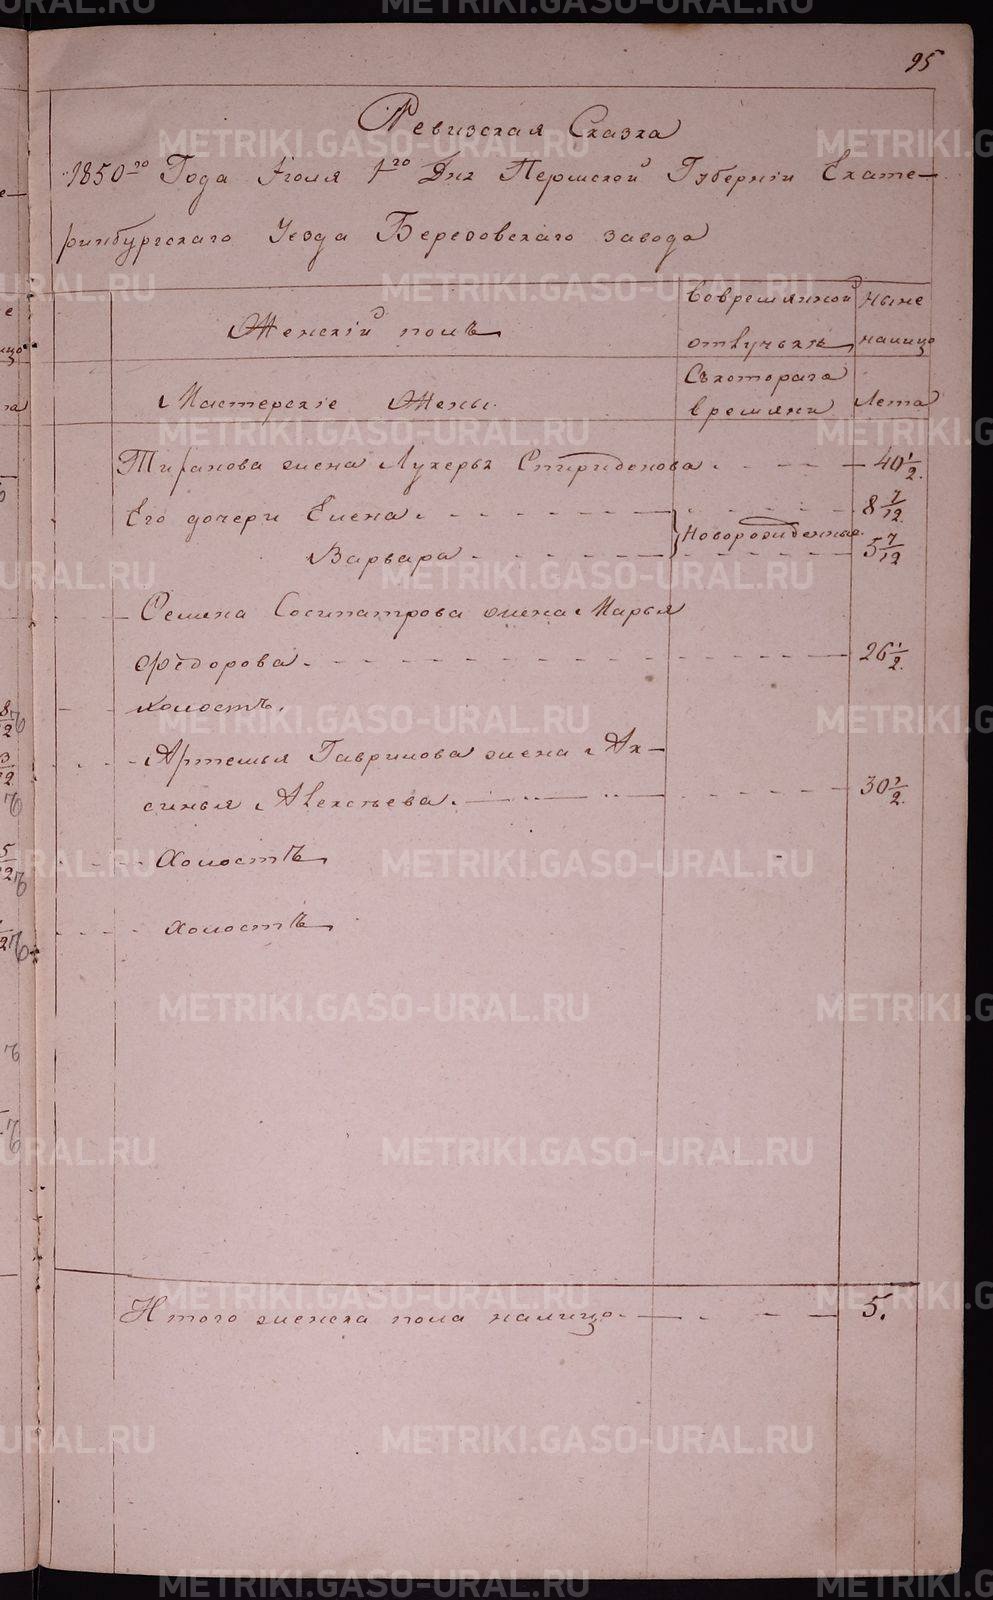 95
Ревизская Сказка
1850го Года Июля 1го Дня Пермской Губернiи Екате-
ринбургскаго Уезда Березовскаго завода
Женскiй полъ
вовремянной
отлучькѣ
ныне
налицо
Мастерскiе Жены.
Съкотораго
времяни
Лета
жена Лукерья Спиридонова 40 1/2.
Его дочери Елена 8 7/12.
Новорожденные.
Варвара 5 7/12
Семена Сосипатрова жена Марья
Федорова 26 1/2.
холостъ.
Артемья Гаврилова жена Ак-
синья Алексеева. 30 1/2.
Холостъ
холостъ
Итого женска пола налицо 5.
METRIKI.GASO-URAL.RU